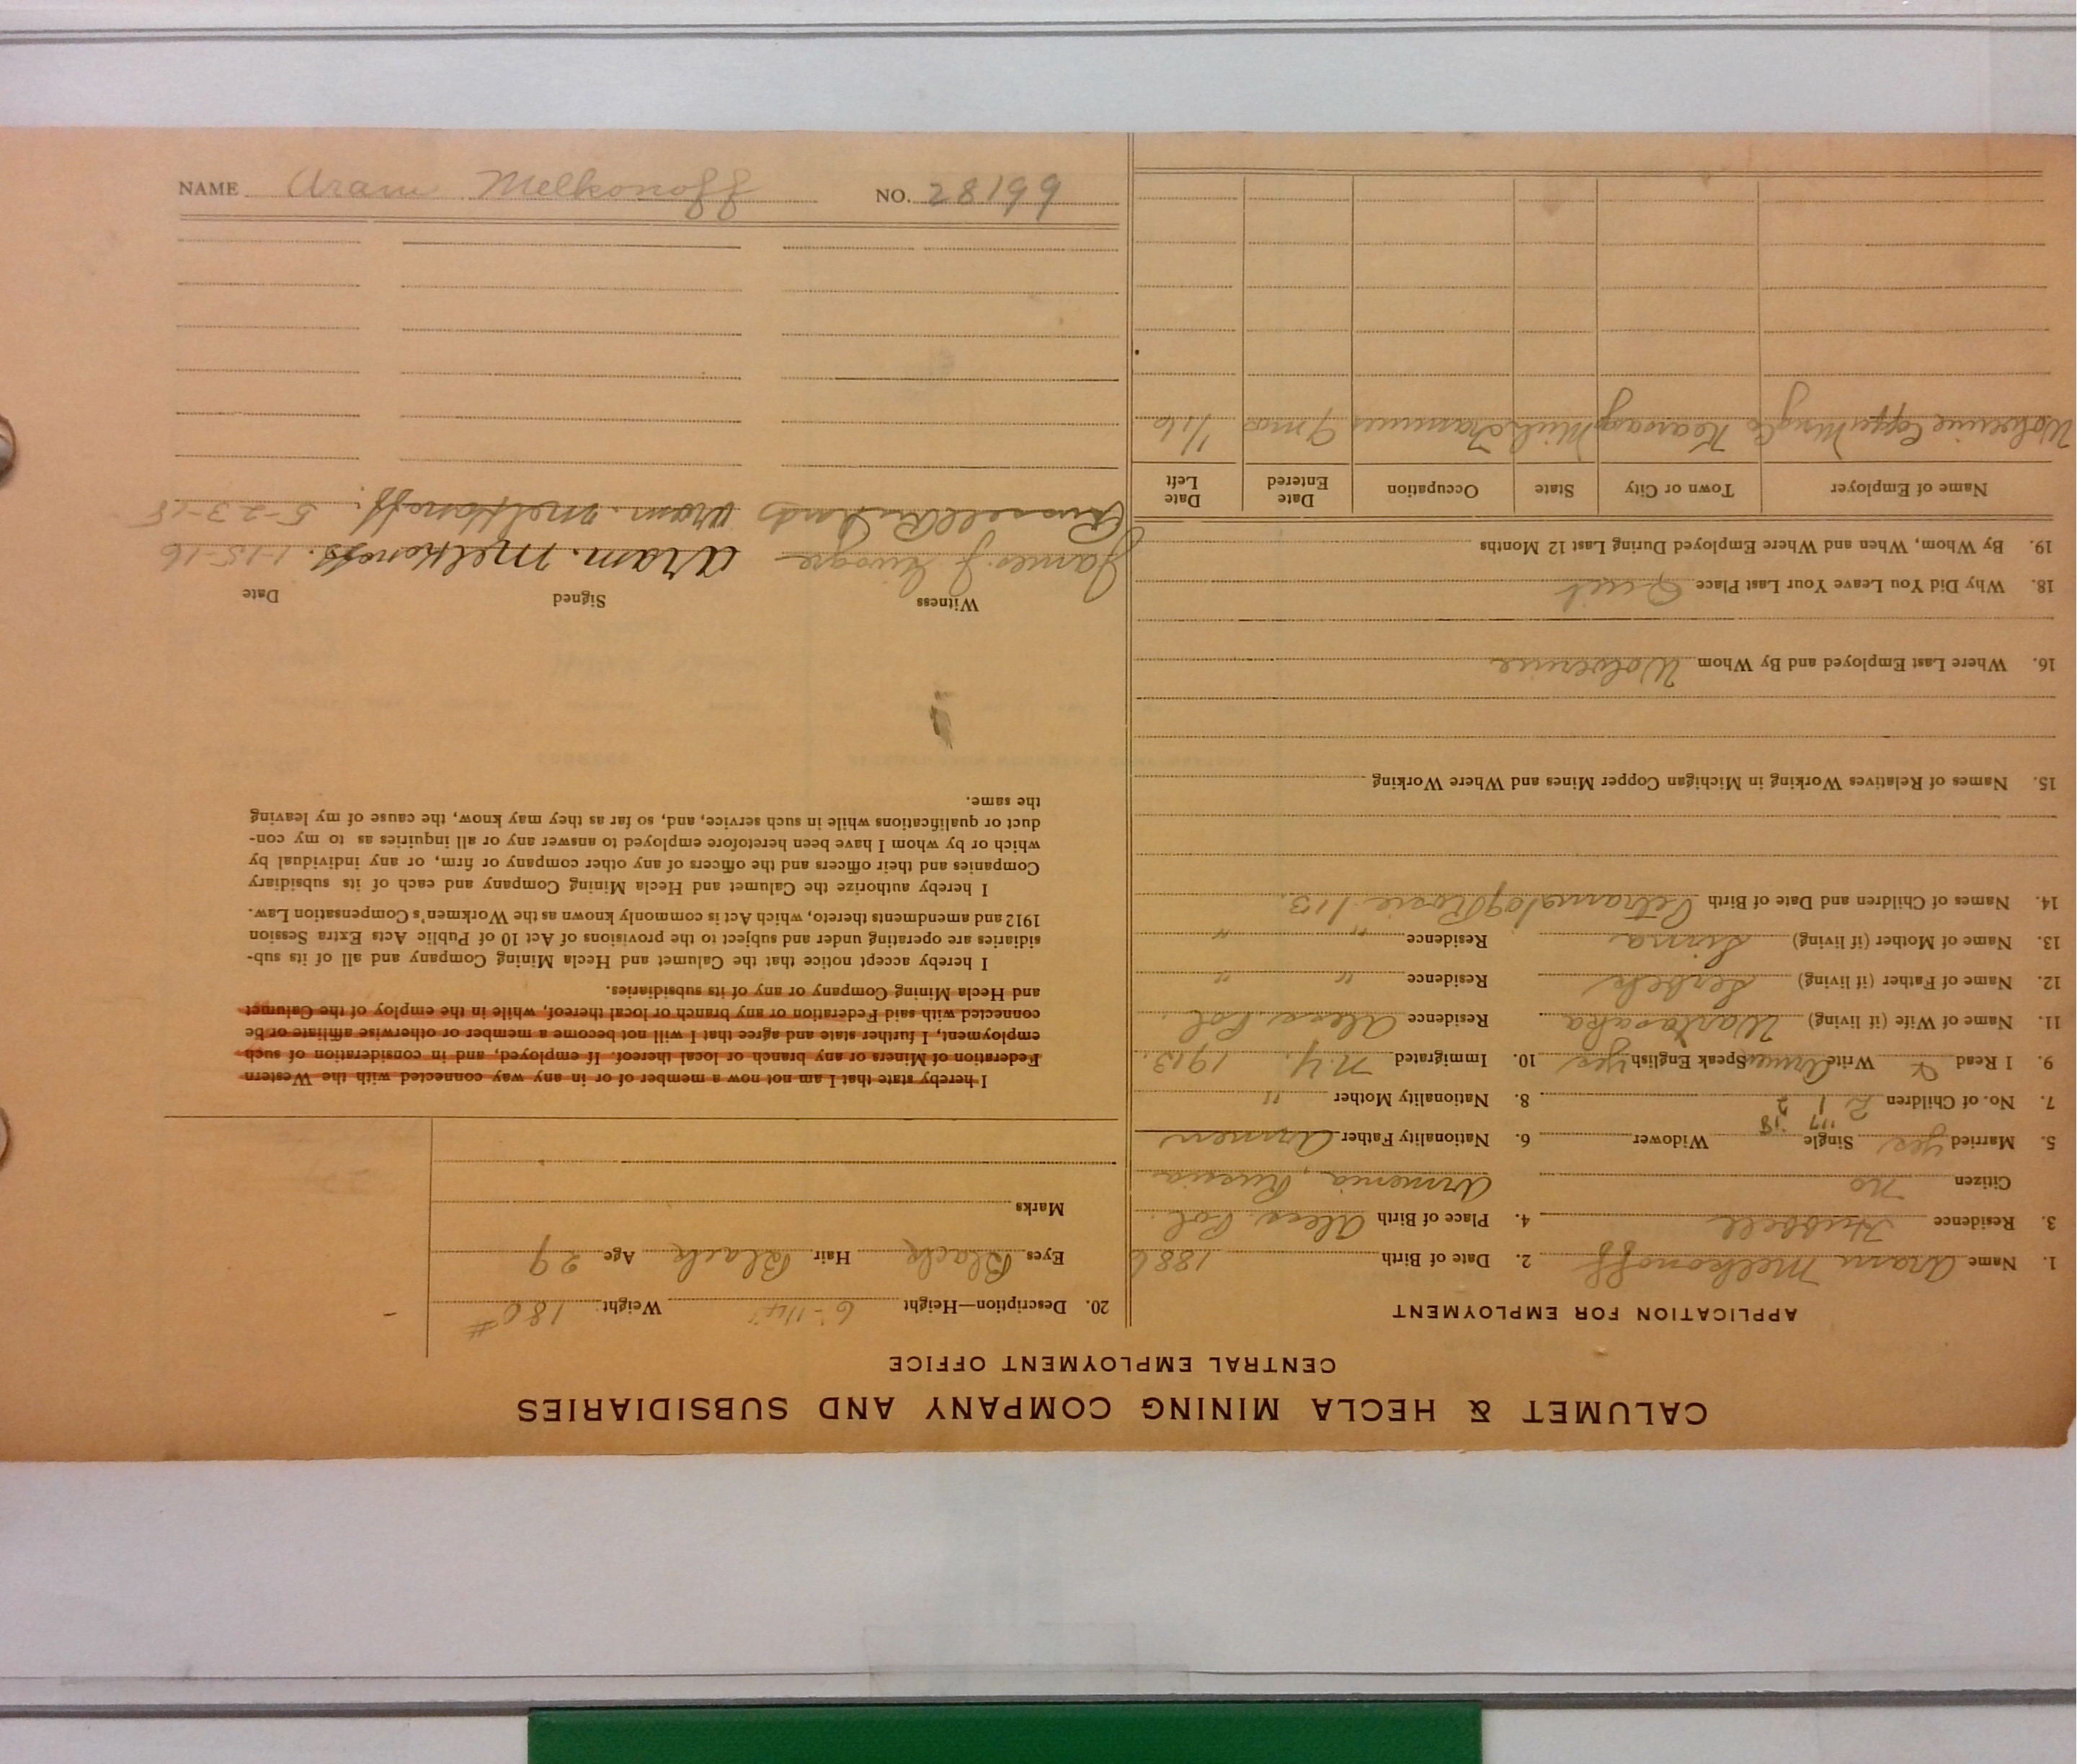 CALUMET & HECLA MINING COMPANY AND SUBSIDIARIES
CENTRAL EMPLOYMENT OFFICE
APPLICATION FOR EMPLOYMENT
1. Name Aram Melkonoff 2. Date of Birth 1886
3. Residence Hubbell 4. Place of Birth Alex. Pol.
Citizen no Armenia, Russia
5. Married yes Single Widower 6. Nationality Father Armen
7. No. of Children 2 8. Nationality Mother "
9. I Read & Write Armen Speak English yes 10. Immigrated N.Y. 1913.
11. Name of Wife (if living) Residence Alex. Pol.
12. Name of Father (if living) Residence " "
13. Name of Mother (if living) Residence " "
14. Names of Children and Date of Birth
15. Names of Relatives Working in Michigan Copper Mines and Where Working
16. Where Last Employed and By Whom Wolverine
18. Why Did You Leave Your Last Place Quit
19. By Whom, When and Where Employed During Last 12 Months
Name of Employer Town or City State Occupation Date Entered Date Left
Wolverine Copper Mng Co Kearsarge Mich Trammer 9 mos 1/16
20. Description—Height Weight 180 #
Eyes Black Hair Black Age 29
Marks
I hereby state that I am not now a member of or in any way connected with the Western
Federation of Miners or any branch or local thereof. If employed, and in consideration of such
employment, I further state and agree that I will not become a member or otherwise affiliate or be
connected with said Federation or any branch or local thereof, while in the employ of the Calumet
and Hecla Mining Company or any of its subsidiaries.
I hereby accept notice that the Calumet and Hecla Mining Company and all of its sub-
sidiaries are operating under and subject to the provisions of Act 10 of Public Acts Extra Session
1912 and amendments thereto, which Act is commonly known as the Workmen's Compensation Law.
I hereby authorize the Calumet and Hecla Mining Company and each of its subsidiary
Companies and their officers and the officers of any other company or firm, or any individual by
which or by whom I have been heretofore employed to answer any or all inquiries as to my con-
duct or qualifications while in such service, and, so far as they may know, the cause of my leaving
the same.
Witness Signed Date
James J. Aram. Melkonoff. 1-15-16
Russell Aram. Melkonoff. 5-23-18
NAME Aram Melkonoff NO. 28199